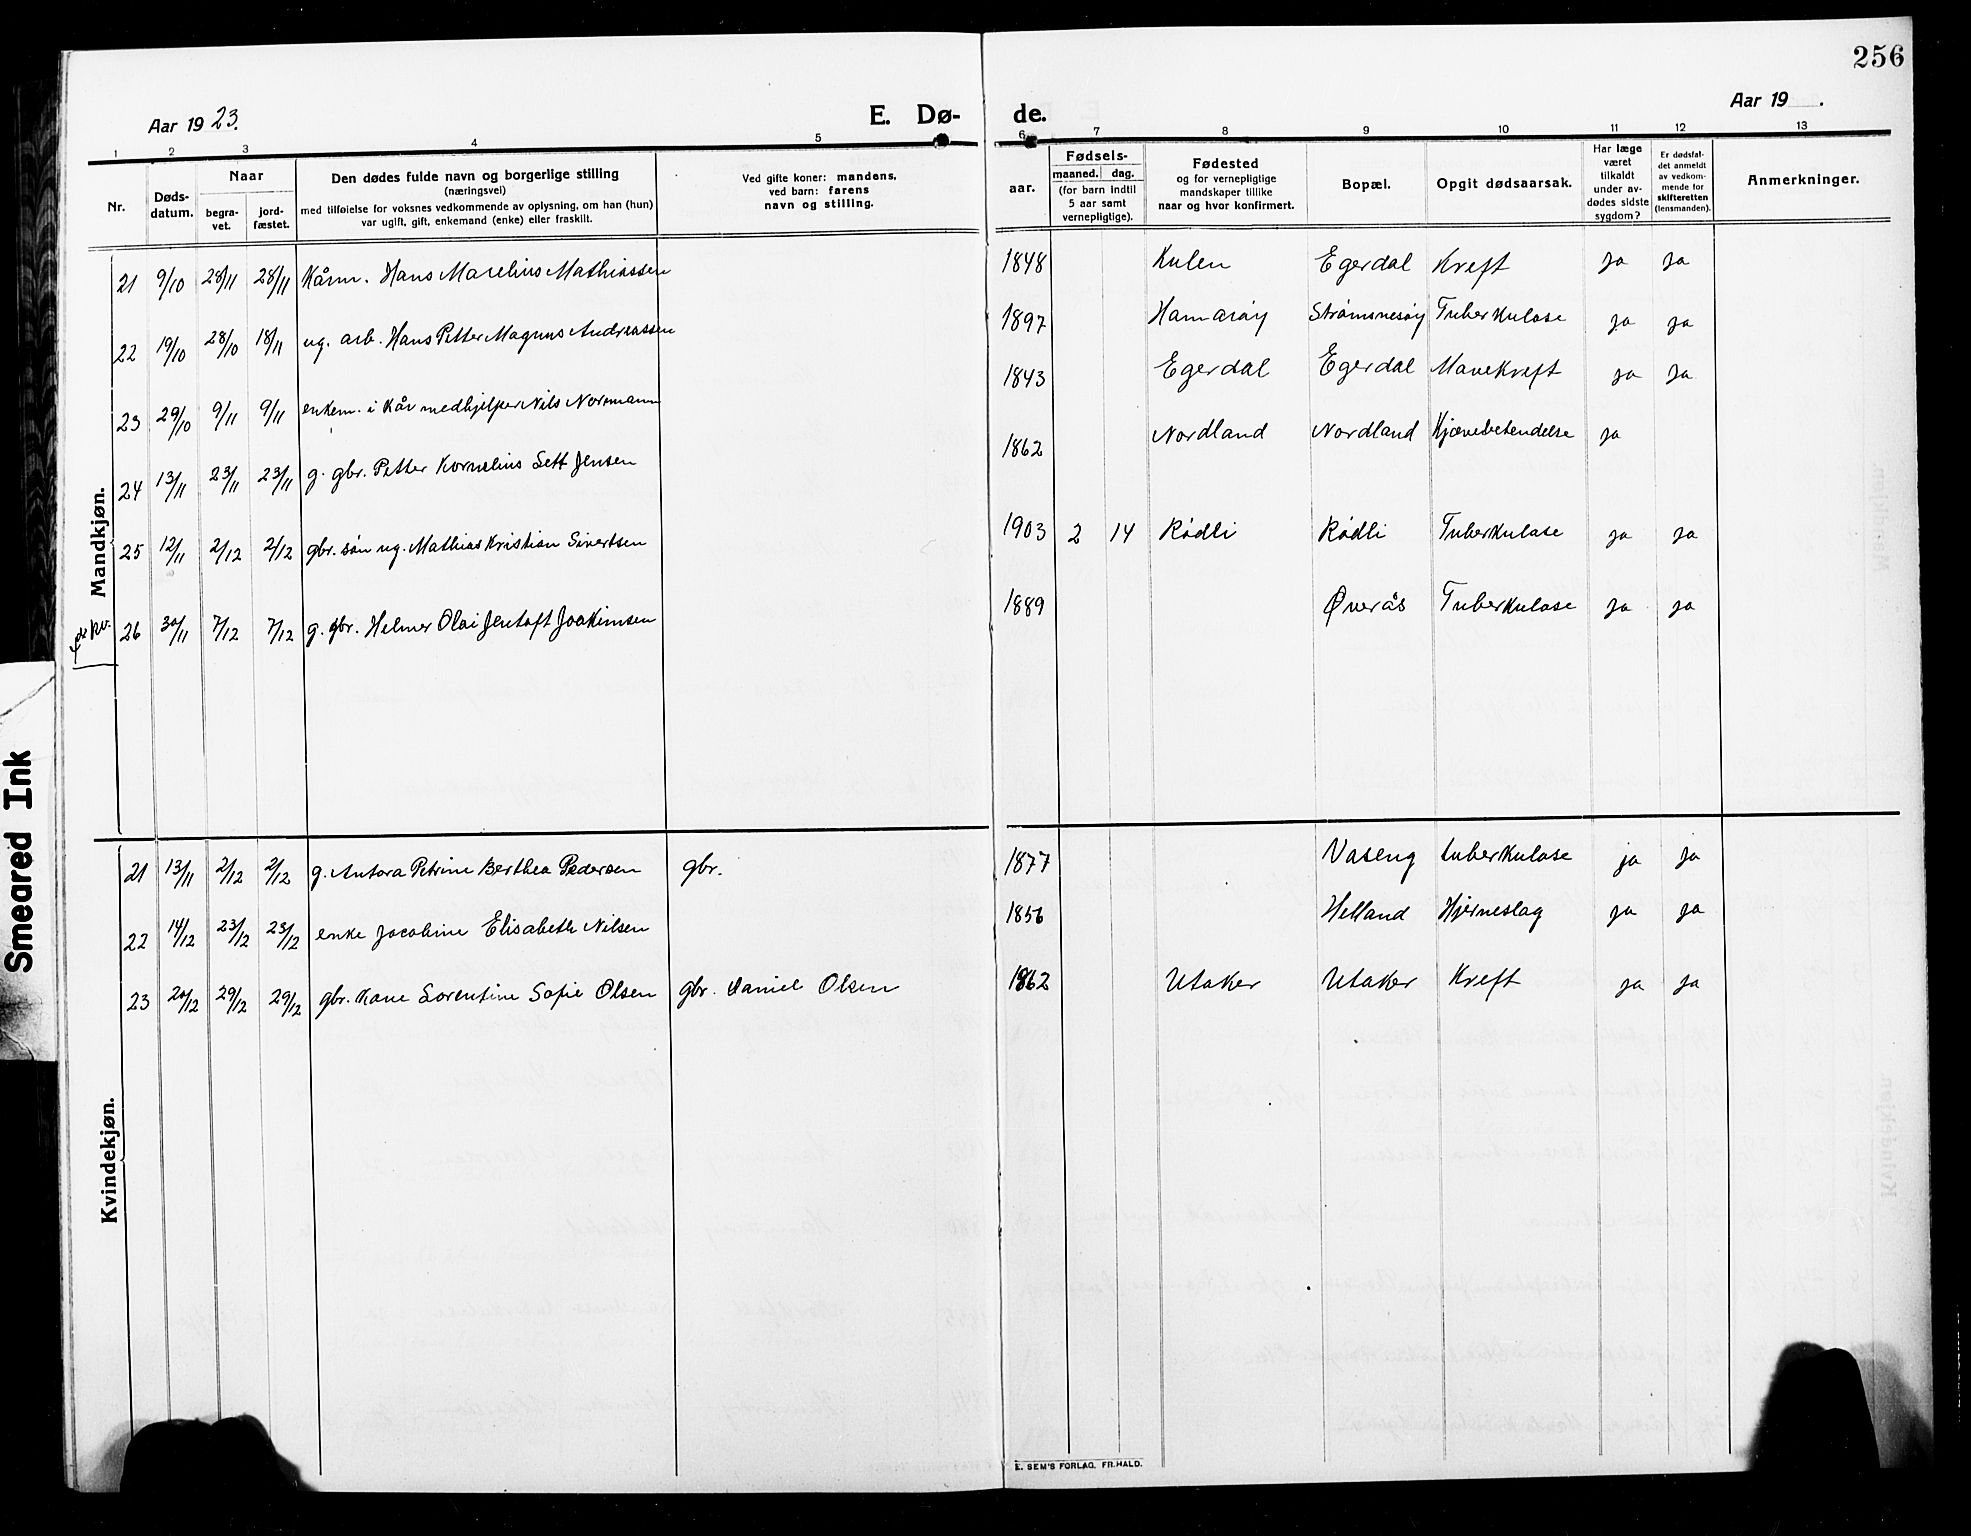 256
Aar 1923.
E. Dø-
de.
Aar 19 .
1 2 3 4 5 6 7 8 9 10 11 12 13
Nr.
Døds-
datum.
Naar
begra-
vet.
jord-
fæstet.
Den dødes fulde navn og borgerlige stilling
(næringsvei)
med tilføielse for voksnes vedkommende av oplysning, om han (hun)
var ugift, gift, enkemand (enke) eller fraskilt.
Ved gifte koner: mandens,
ved barn: farens
navn og stilling.
aar.
Fødsels-
maaned. dag.
(for barn indtil
5 aar samt
vernepligtige).
Fødested
og for vernepligtige
mandskaper tillike
naar og hvor konfirmert.
Bopæl.
Opgit dødsaarsak.
Har læge
været
tilkaldt
under av-
dødes sidste
sygdom?
Er dødsfal-
det anmeldt
av vedkom-
mende for
skifteretten
(lensmanden).
Anmerkninger.
Mandkjøn.
21 9/10 28/11 28/11 Kårm. Hans Marelius Mathiassen 1848 Kulen Egerdal Kreft ja ja
22 19/10 28/10 18/11 ug. arb. Hans Petter Magnus Andreassen 1897 Hamarøy Strømsnesøy Tuberkulose ja ja
23 29/10 9/11 9/11 enkem. i kår medhjelper Nils Normann 1843 Egerdal Egerdal Mavekreft ja ja
24 13/11 23/11 23/11 g. gbr. Petter Kornelius Sett Jensen 1862 Nordland Nordland ja
25 12/11 2/12 2/12 gbr. søn ug. Mathias Kristian Sivertsen 1903 2 14 Rødli Rødli Tuberkulose ja ja
26 30/11 7/12 7/12 g. gbr. Helmer Olai Jentoft Joakimsen 1889 Øverås Tuberkulose ja ja
Kvindekjøn.
21 13/11 2/12 2/12 g. Antora Petrine Berthea Pedersen gbr. 1877 Vaseng tuberkulose ja ja
22 14/12 23/12 23/12 enke Jacobine Elisabeth Nilsen 1856 Helland Hjerneslag ja ja
23 20/12 29/12 29/12 gbr. kone Lorentine Sofie Olsen gbr. Daniel Olsen 1862 Utaker Utaker Kreft ja ja
E. SEM'S FORLAG, FR.HALD.
Smeared Ink